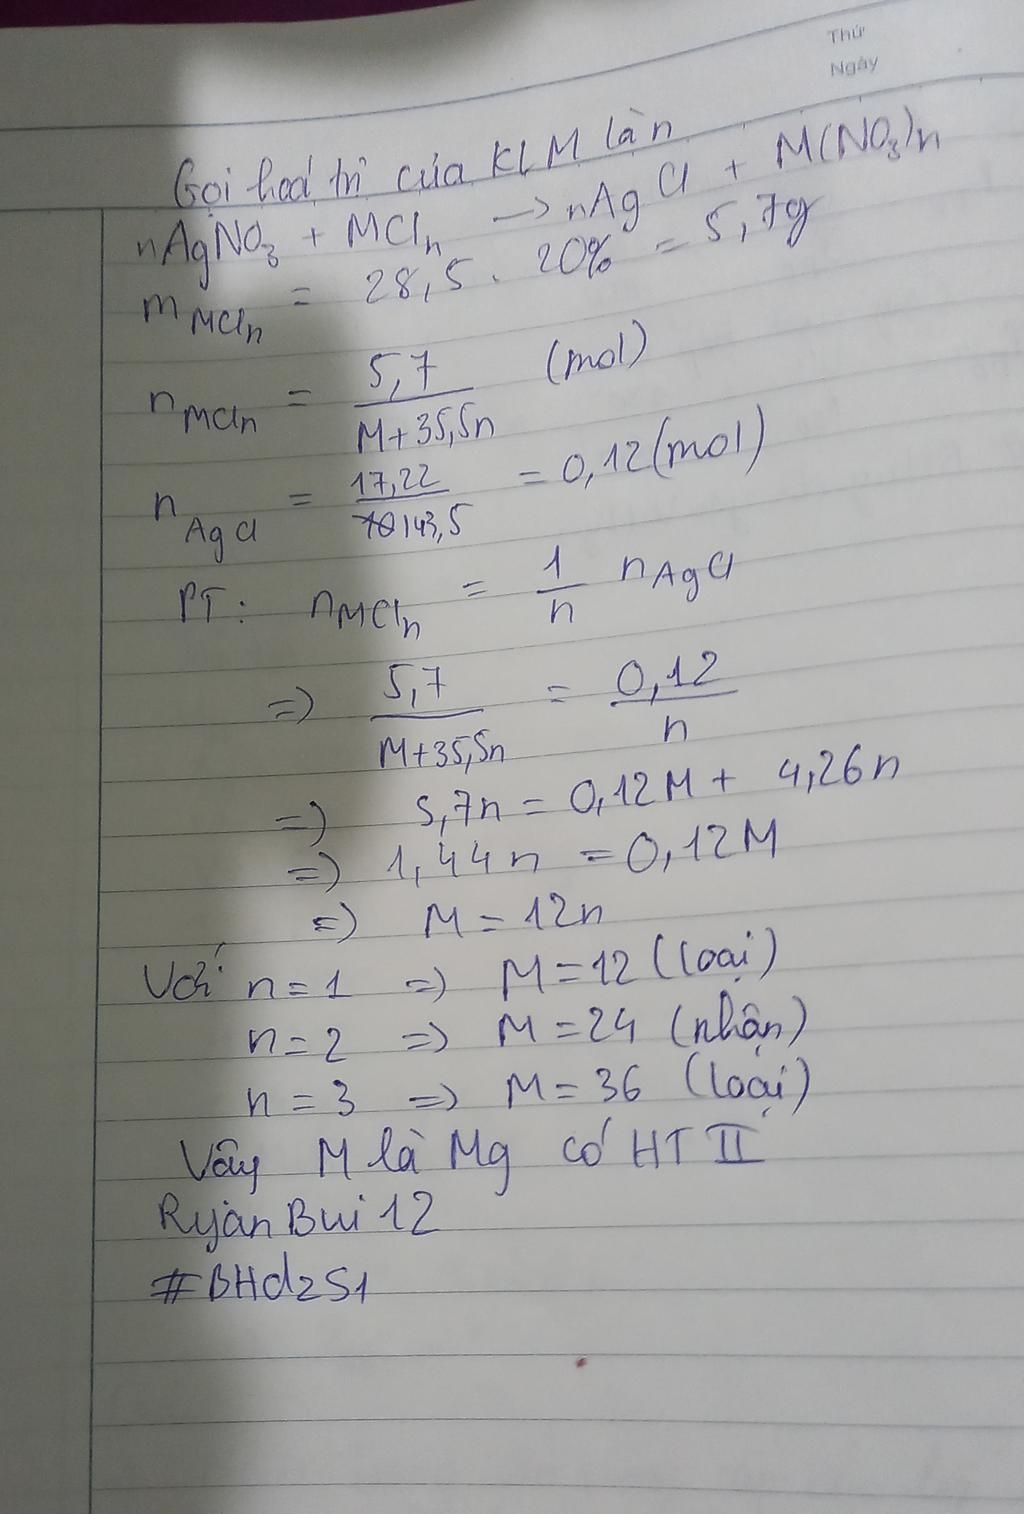 Thứ
Ngày
Gọi hoá trị của KL M là n
nAgNO₃ + MClₙ → nAgCl + M(NO₃)n
m MClₙ = 28,5 . 20% = 5,7g
n MClₙ = 5,7 / M+35,5n (mol)
n AgCl = 17,22 / 143,5 = 0,12 (mol)
PT: n MClₙ = 1/n n AgCl
=> 5,7 / M+35,5n = 0,12 / n
=> 5,7n = 0,12M + 4,26n
=> 1,44n = 0,12M
=> M = 12n
Với n = 1 => M = 12 (loại)
n = 2 => M = 24 (nhận)
n = 3 => M = 36 (loại)
Vậy M là Mg có HT II
RyanBui12
#BHd2S1